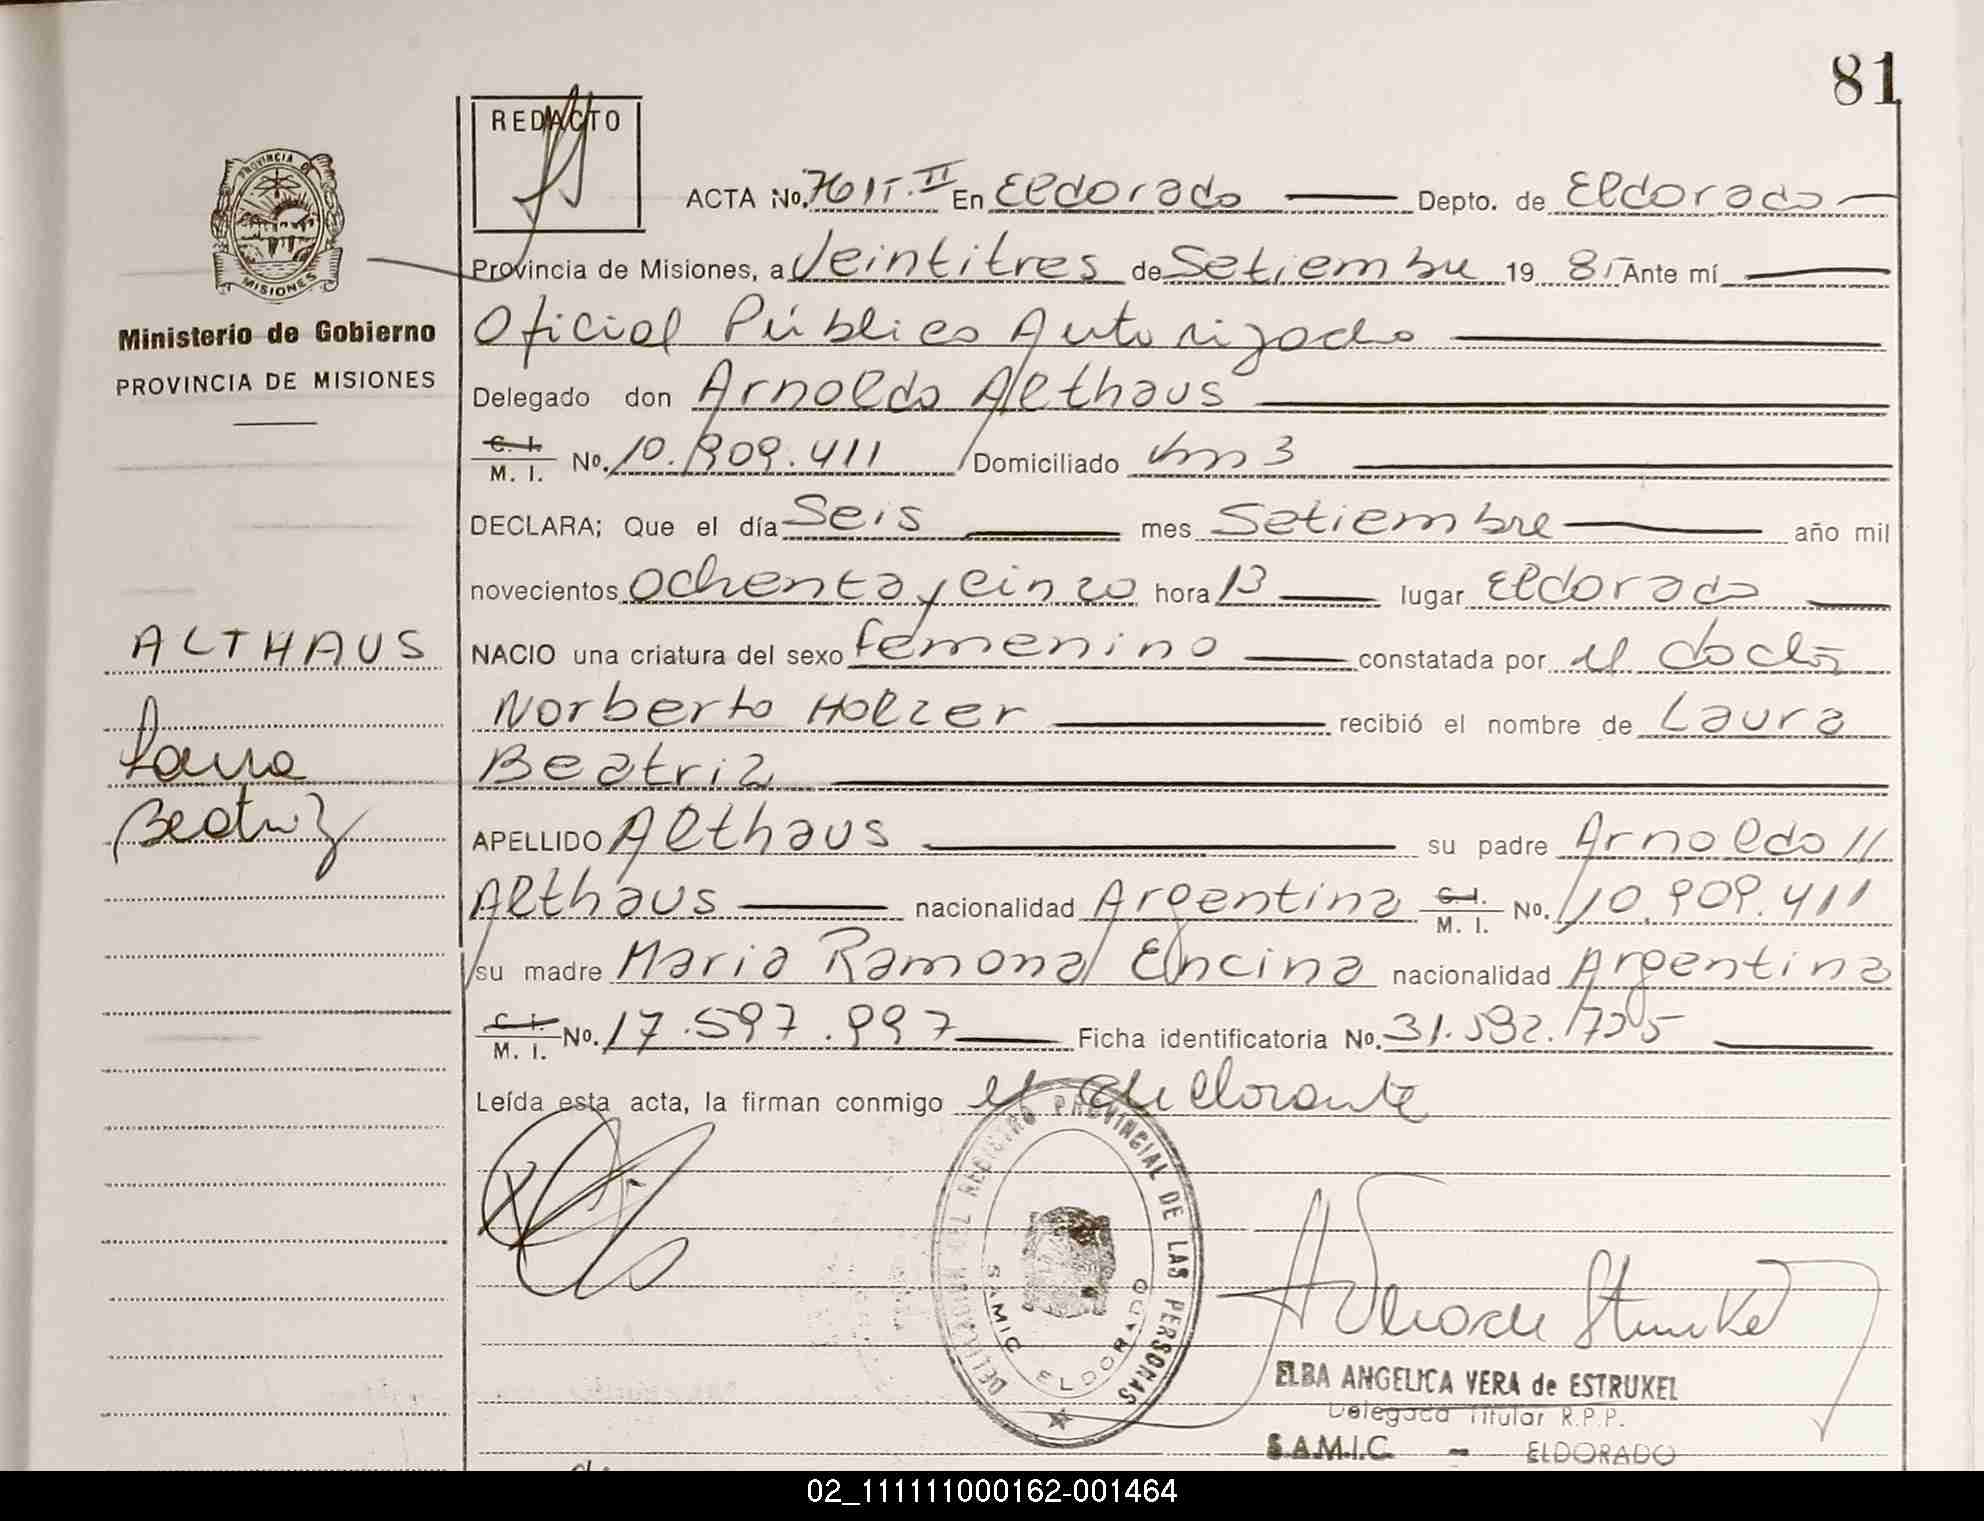 81
REDACTO
PROVINCIA DE
MISIONES
Ministerio de Gobierno
PROVINCIA DE MISIONES
ALTHAUS
Laura
Beatriz
ACTA No. 76 II En Eldorado Depto. de Eldorado
Provincia de Misiones, a Veintitres de Setiembre 19 85 Ante mí
Oficial Público Autorizado
Delegado don Arnoldo Althaus
C. I. M. I. No. 10.909.411 Domiciliado Km 3
DECLARA; Que el día Seis mes Setiembre año mil
novecientos ochenta y cinco hora 13 lugar Eldorado
NACIO una criatura del sexo femenino constatada por el doctor
Norberto Holzer recibió el nombre de Laura
Beatriz
APELLIDO Althaus su padre Arnoldo //
Althaus nacionalidad Argentina C. I. M. I. No. 10.909.411
su madre Maria Ramona Encina nacionalidad Argentina
C. I. M. I. No. 17.597.997 Ficha identificatoria No. 31.592.725
Leída esta acta, la firman conmigo el declarante
DELEGACION DEL REGISTRO PROVINCIAL DE LAS PERSONAS
SAMIC ELDORADO
ELBA ANGELICA VERA de ESTRUKEL
Delegada Titular R.P.P.
S.A.M.I.C. - ELDORADO
02_111111000162-001464